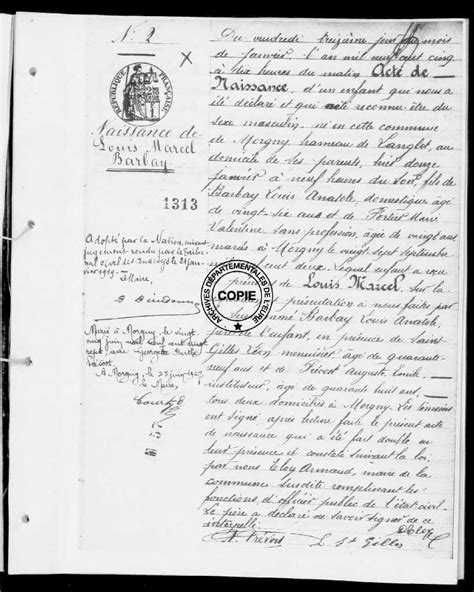 N: 2
RÉPUBLIQUE FRANÇAISE
Naissance de
Louis Marcel
Barbay
1313
Adopté par la Nation, suivant
jugement rendu par le Tribu-
nal civil des Andelys le 21 Jan-
vier 1919.
Le Maire,
Marié à Morgny, le vingt
cinq juin mil neuf cent vingt
sept, avec
A Morgny, le 25 juin 1927
Le Maire,
Du vendredi treizième jour du mois
de janvier l'an mil neuf cent cinq
à dix heures du matin Acte de
Naissance, d'un enfant qui nous a
été déclaré et qui a été reconnu être du
sexe masculin, né en cette commune
de Morgny hameau de Sanglet, au
domicile de ses parents, hier douze
janvier à neuf heures du soir, fils de
Barbay Louis Anatole, domestique, âgé
de vingt six ans et de Marie
Valentine sans profession, âgée de vingt ans
mariés à Morgny le vingt sept septembre
cent deux. Lequel enfant a reçu
Louis Marcel, sur la
présentation à nous faite par
Barbay Louis Anatole,
de l'enfant, en présence de Saint-
Gilles Léon menuisier, âgé de quarante
neuf ans et de Prévost Auguste Emile
instituteur, âgé de quarante huit ans,
tous deux domiciliés à Morgny. Les témoins
ont signé après lecture faite le présent acte
de naissance qui a été fait double en
leur présence et constaté suivant la loi,
par nous Eloy Armand, maire de la
commune susdite remplissant les
fonctions d'officier public de l'état civil.
Le père a déclaré ne savoir signer de ce
interpellé.
A. Prévost L. St Gilles Eloy
ARCHIVES DÉPARTEMENTALES DE L'EURE
COPIE